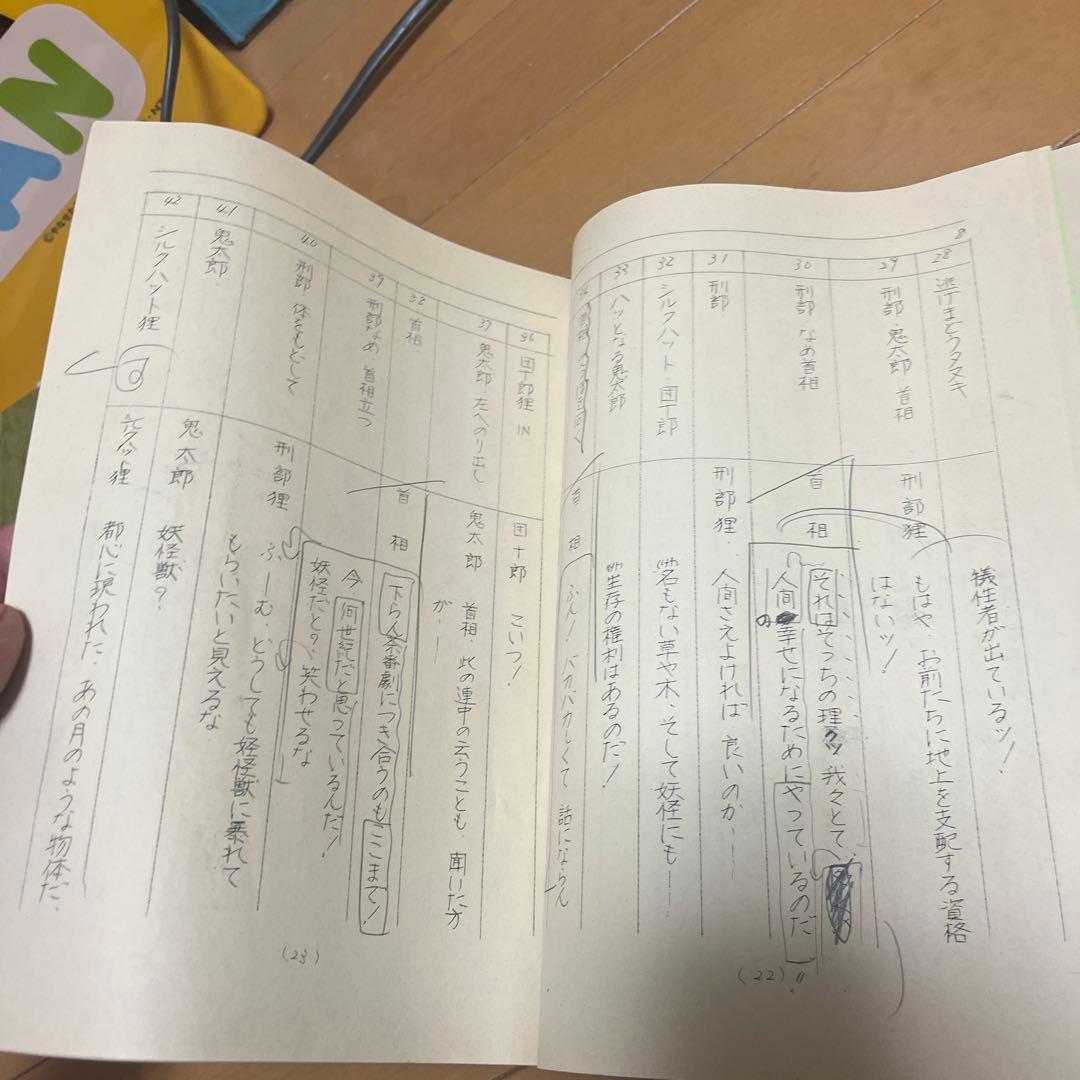 8
28
逃げまどうタヌキ
犠性者が出ているッ!
29
刑部・鬼太郎 首相
刑部狸
もはや、お前たちに地上を支配する資格
はないッ!
30
刑部 なめ首相
首相
それはそっちの理クツ 我々とて
人間の幸せになるためにやっているのだ
31
刑部
刑部狸
人間さえよければ良いのか――
32
シルクハット・団十郎
名もない草や木、そして妖怪にも――
33
ハッとなる鬼太郎
生存の権利はあるのだ!
首相
ふん! バカバカしくて 話にならん
(22)
36
団十郎狸 IN
団十郎
こいつ!
37
鬼太郎 左へのり出し
鬼太郎
首相、此の連中の云うことも、聞いた方
が――
38
首相
首相
下らん茶番劇につき合うのもここまで!
39
刑部なめ 首相立つ
今、何世紀だと思っているんだ!
妖怪だと?笑わせるな
40
刑部 体をもどして
刑部狸
ふーむ、どうしても妖怪獣に暴れて
もらいたいと見えるな
41
鬼太郎
鬼太郎
妖怪獣?
42
シルクハット狸
シルクハット狸
都心に現われた、あの月のような物体だ、
(23)
AN